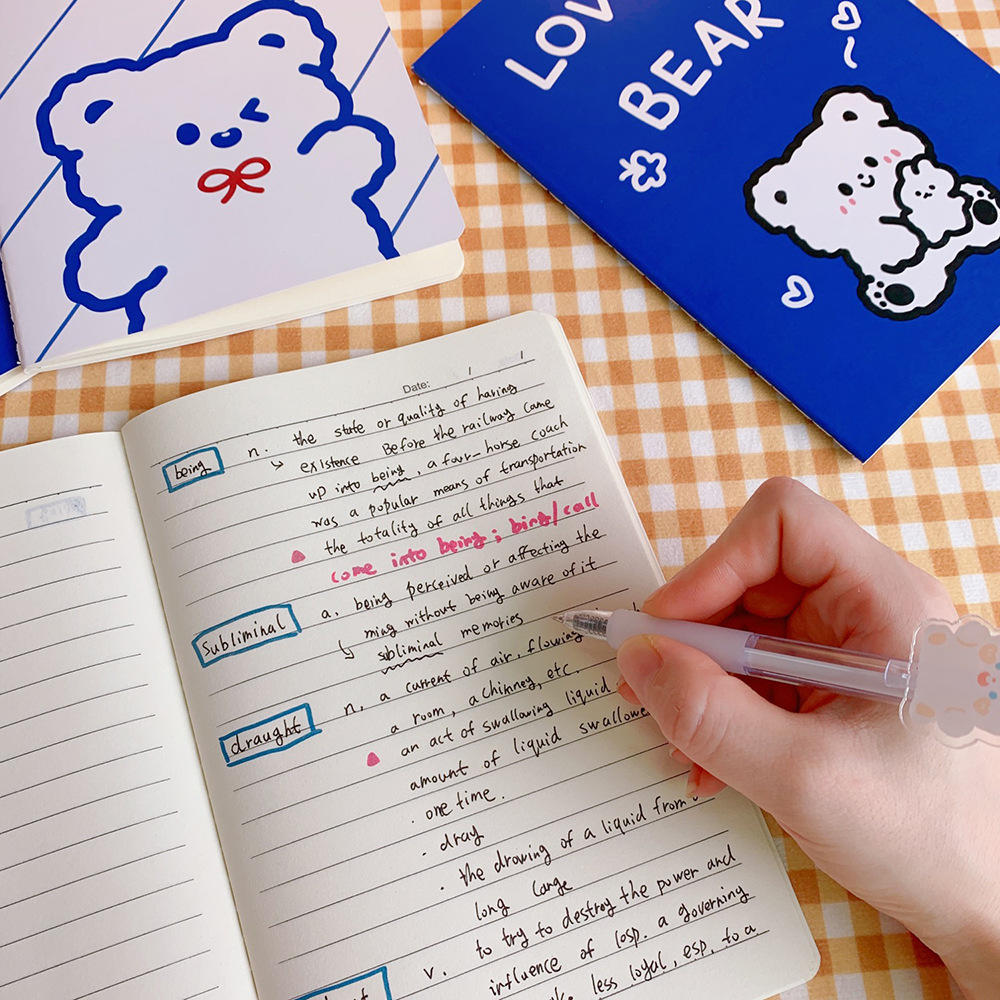 LOVE
BEAR
Date: / /
being n. the state or quality of having
existence Before the railway came
up into being, a four-horse coach
was a popular means of transportation
the totality of all things that
come into being; bing/call
subliminal a. being perceived or affecting the
ming without being aware of it
subliminal memories
draught n. a current of air, flowing
a room, a chimney, etc.
an act of swallowing liquid
amount of liquid swallowe
. one time.
. dray
. the drowing of a liquid from
long large
v. to try to destroy the power and
influence of losp. a governing
less loyal, esp. to a